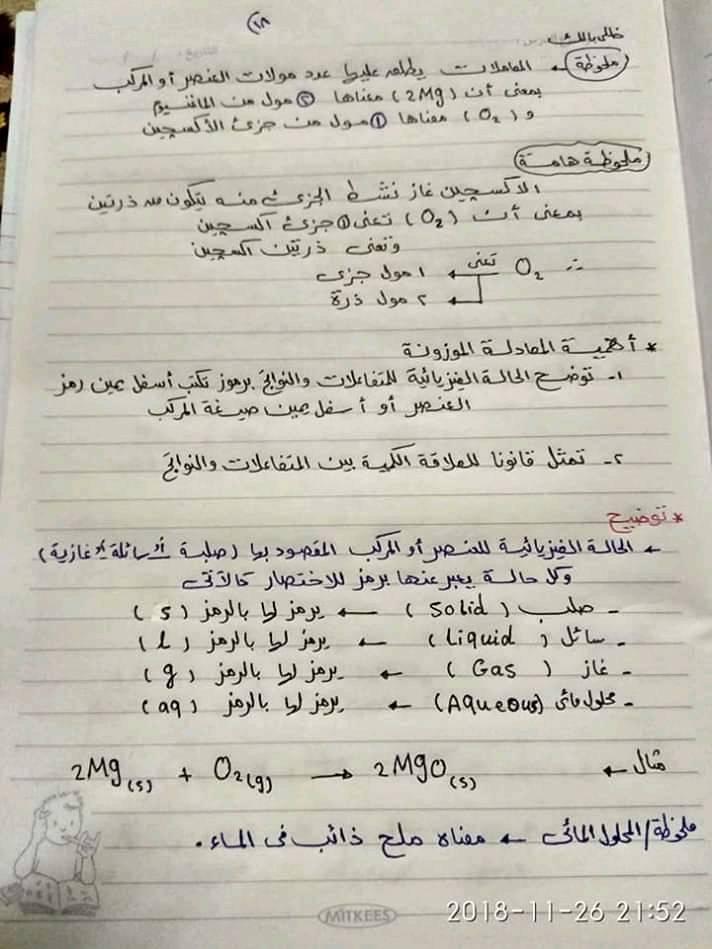 ٢٨
خللى بالك
ملحوظة ← المعاملات يطلق عليها عدد مولات العنصر أو المركب
بمعنى أن (2Mg) معناها ② مول من الماغنسيوم
و (O₂) معناها ① مول من جزئ الأكسجين
ملحوظة هامة
الاكسجين غاز نشط الجزئ منه يتكون من ذرتين
بمعنى أن (O₂) تعنى ① جزئ اكسجين
وتعنى ذرتين اكسجين
∴ O₂ تعنى ← ١ مول جزئ
← ٢ مول ذرة
* أهمية المعادلة الموزونة
١- توضح الحالة الفيزيائية للمتفاعلات والنواتج برموز تكتب أسفل يمين رمز
العنصر أو أسفل يمين صيغة المركب
٢- تمثل قانونا للعلاقة الكمية بين المتفاعلات والنواتج
* توضيح
← الحالة الفيزيائية للعنصر أو المركب المقصود بها (صلبة أو سائلة أو غازية)
وكل حالة يعبر عنها برمز للاختصار كالآتى
- صلب (Solid) ← يرمز لها بالرمز (s)
- سائل (Liquid) ← يرمز لها بالرمز (l)
- غاز (Gas) ← يرمز لها بالرمز (g)
- محلول مائى (Aqueous) ← يرمز لها بالرمز (aq)
مثال ← 2Mg(s) + O₂(g) → 2MgO(s)
ملحوظة/ المحلول المائى ← معناه ملح ذائب فى الماء .
MITKEES
2018-11-26 21:52